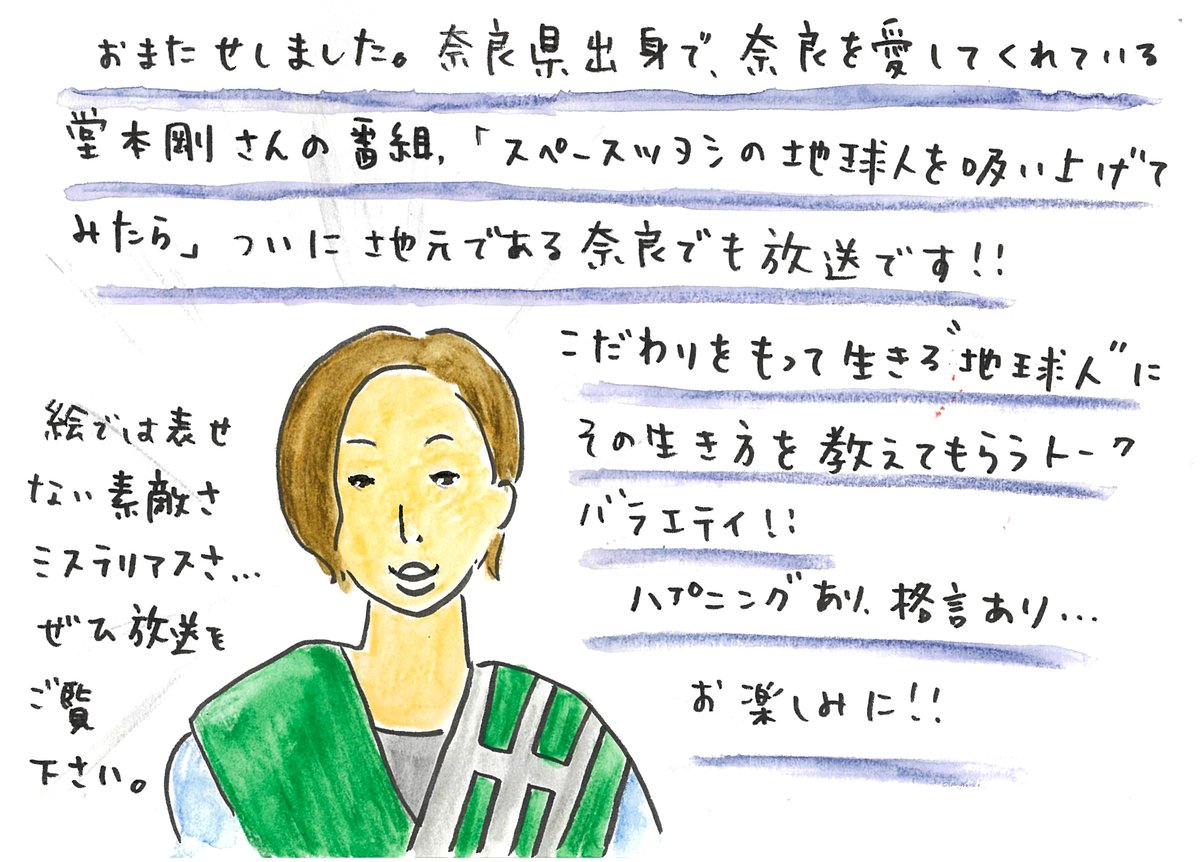 おまたせしました。奈良県出身で、奈良を愛してくれている
堂本剛さんの番組、「スペースツヨシの地球人を吸い上げて
みたら」ついに地元である奈良でも放送です!!
こだわりをもって生きる"地球人"に
その生き方を教えてもらうトーク
バラエティ!!
ハプニングあり、格言あり…
お楽しみに!!
絵では表せ
ない素敵さ
ミステリアスさ…
ぜひ放送を
ご覧
下さい。